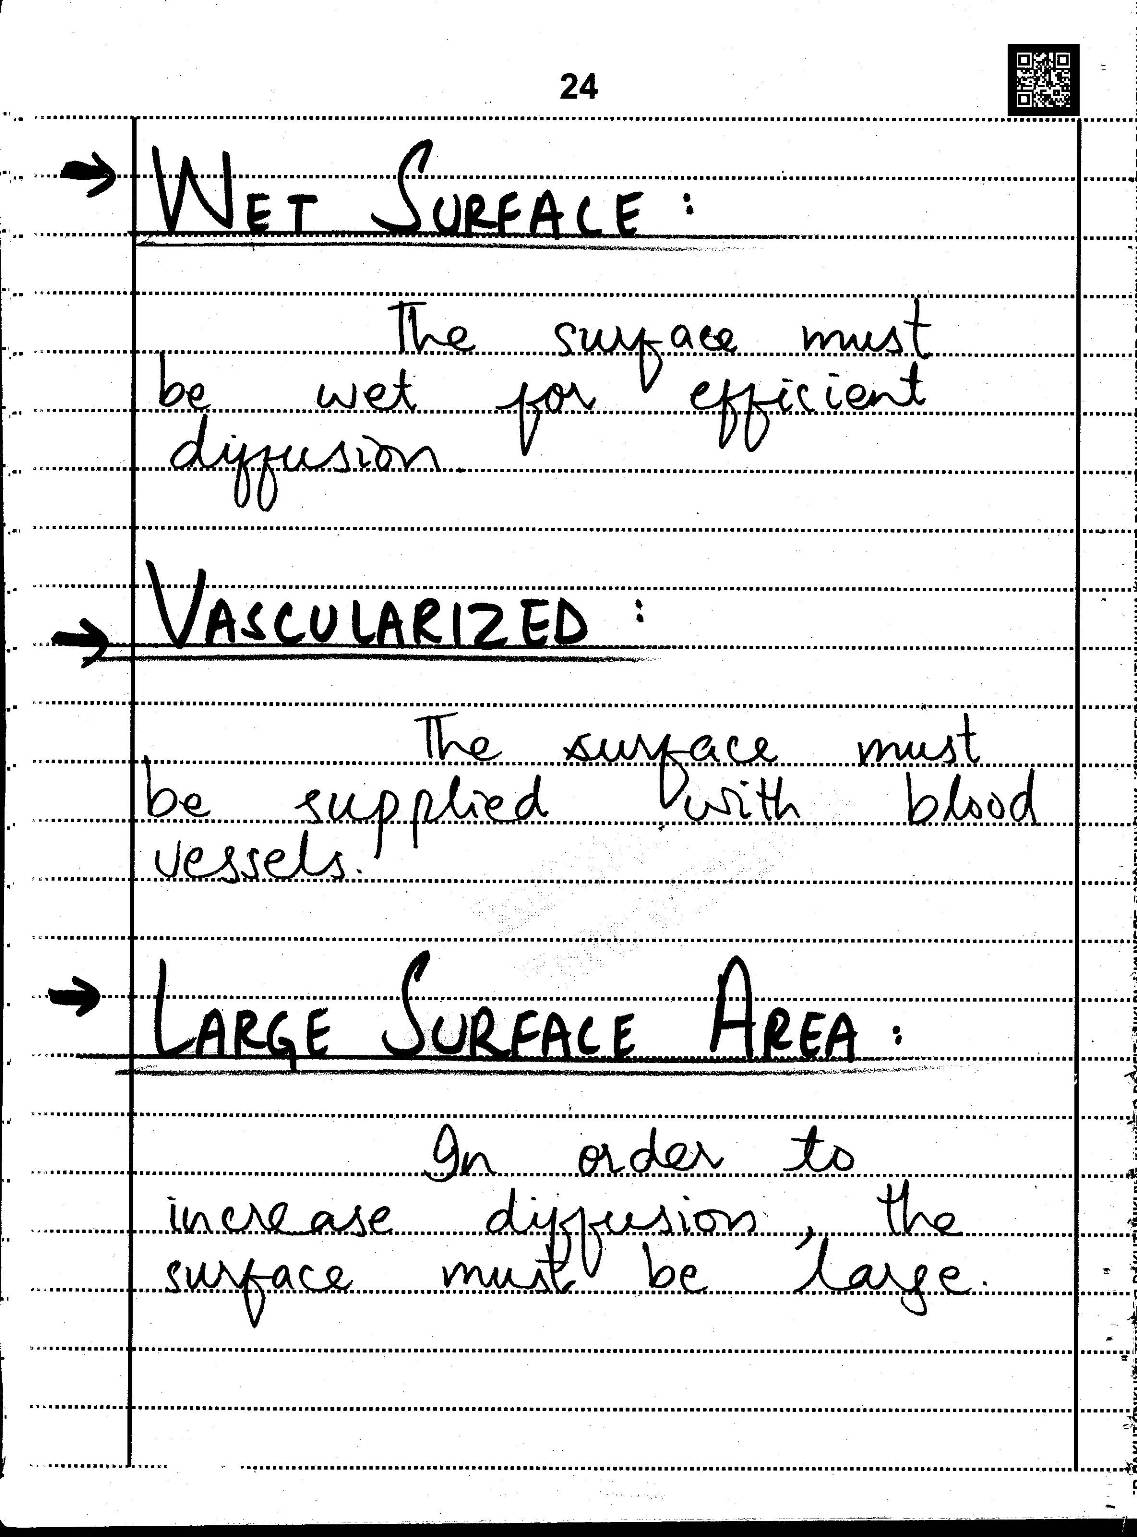 24
→ WET SURFACE :
The surface must
be wet for efficient
diffusion.
→ VASCULARIZED :
The surface must
be supplied with blood
vessels.
→ LARGE SURFACE AREA :
In order to
increase diffusion, the
surface must be large.